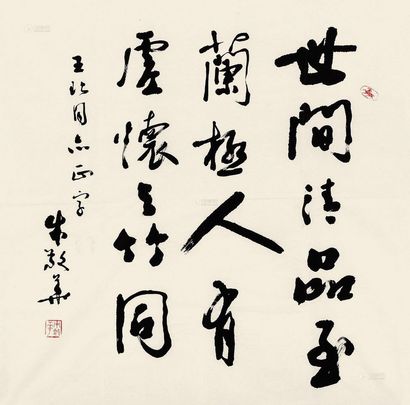 世間清品至
蘭極人有
虛懷与竹同
王玖同志正字
朱敬華